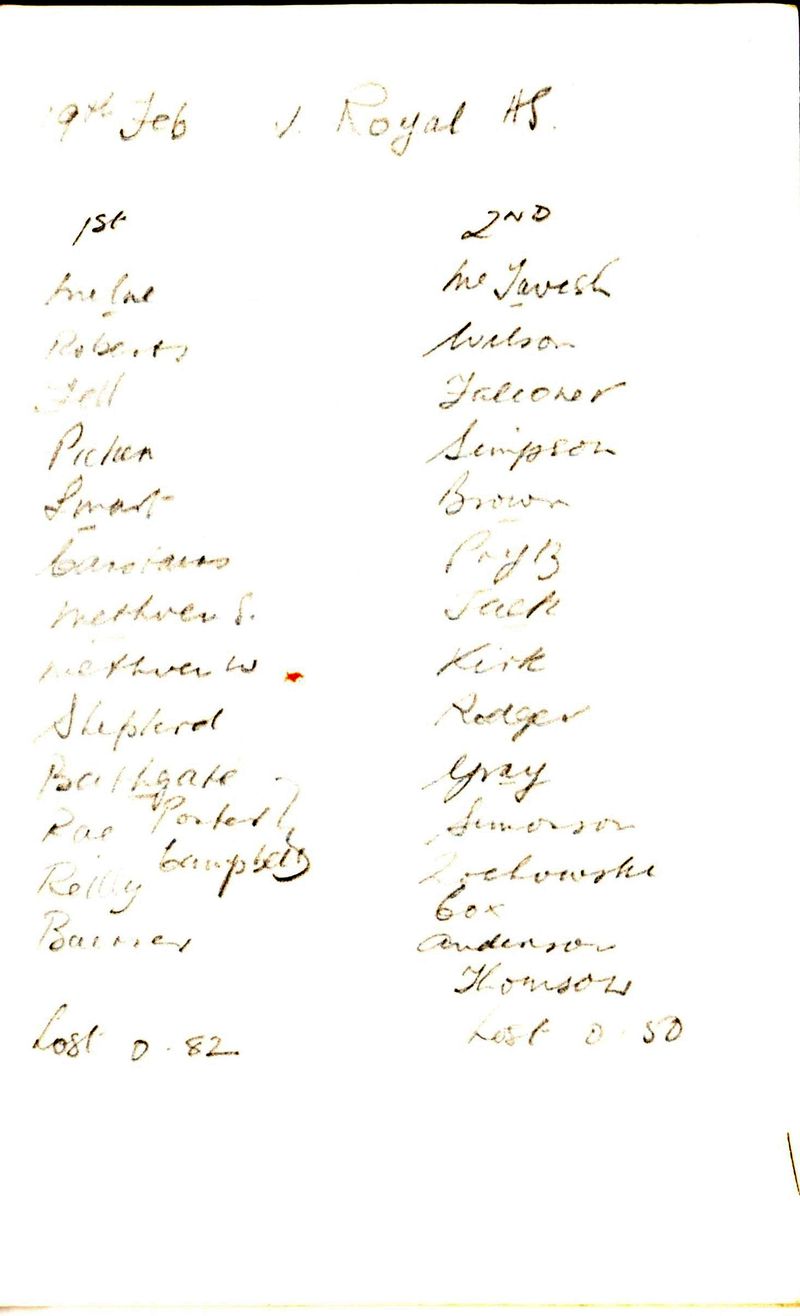 19th Feb v. Royal HS.
1st
Roberts
Fell
Picken
Smart
Carstairs
Methven S.
Methven W
Shepherd
Bathgate
Rae Porter
Reilly Campbell
2ND
McTavish
Wilson
Falconer
Simpson
Brown
Jack
Kirk
Rodger
Gray
Cox
Anderson
Thomson
Lost 0-82
Lost 0-50